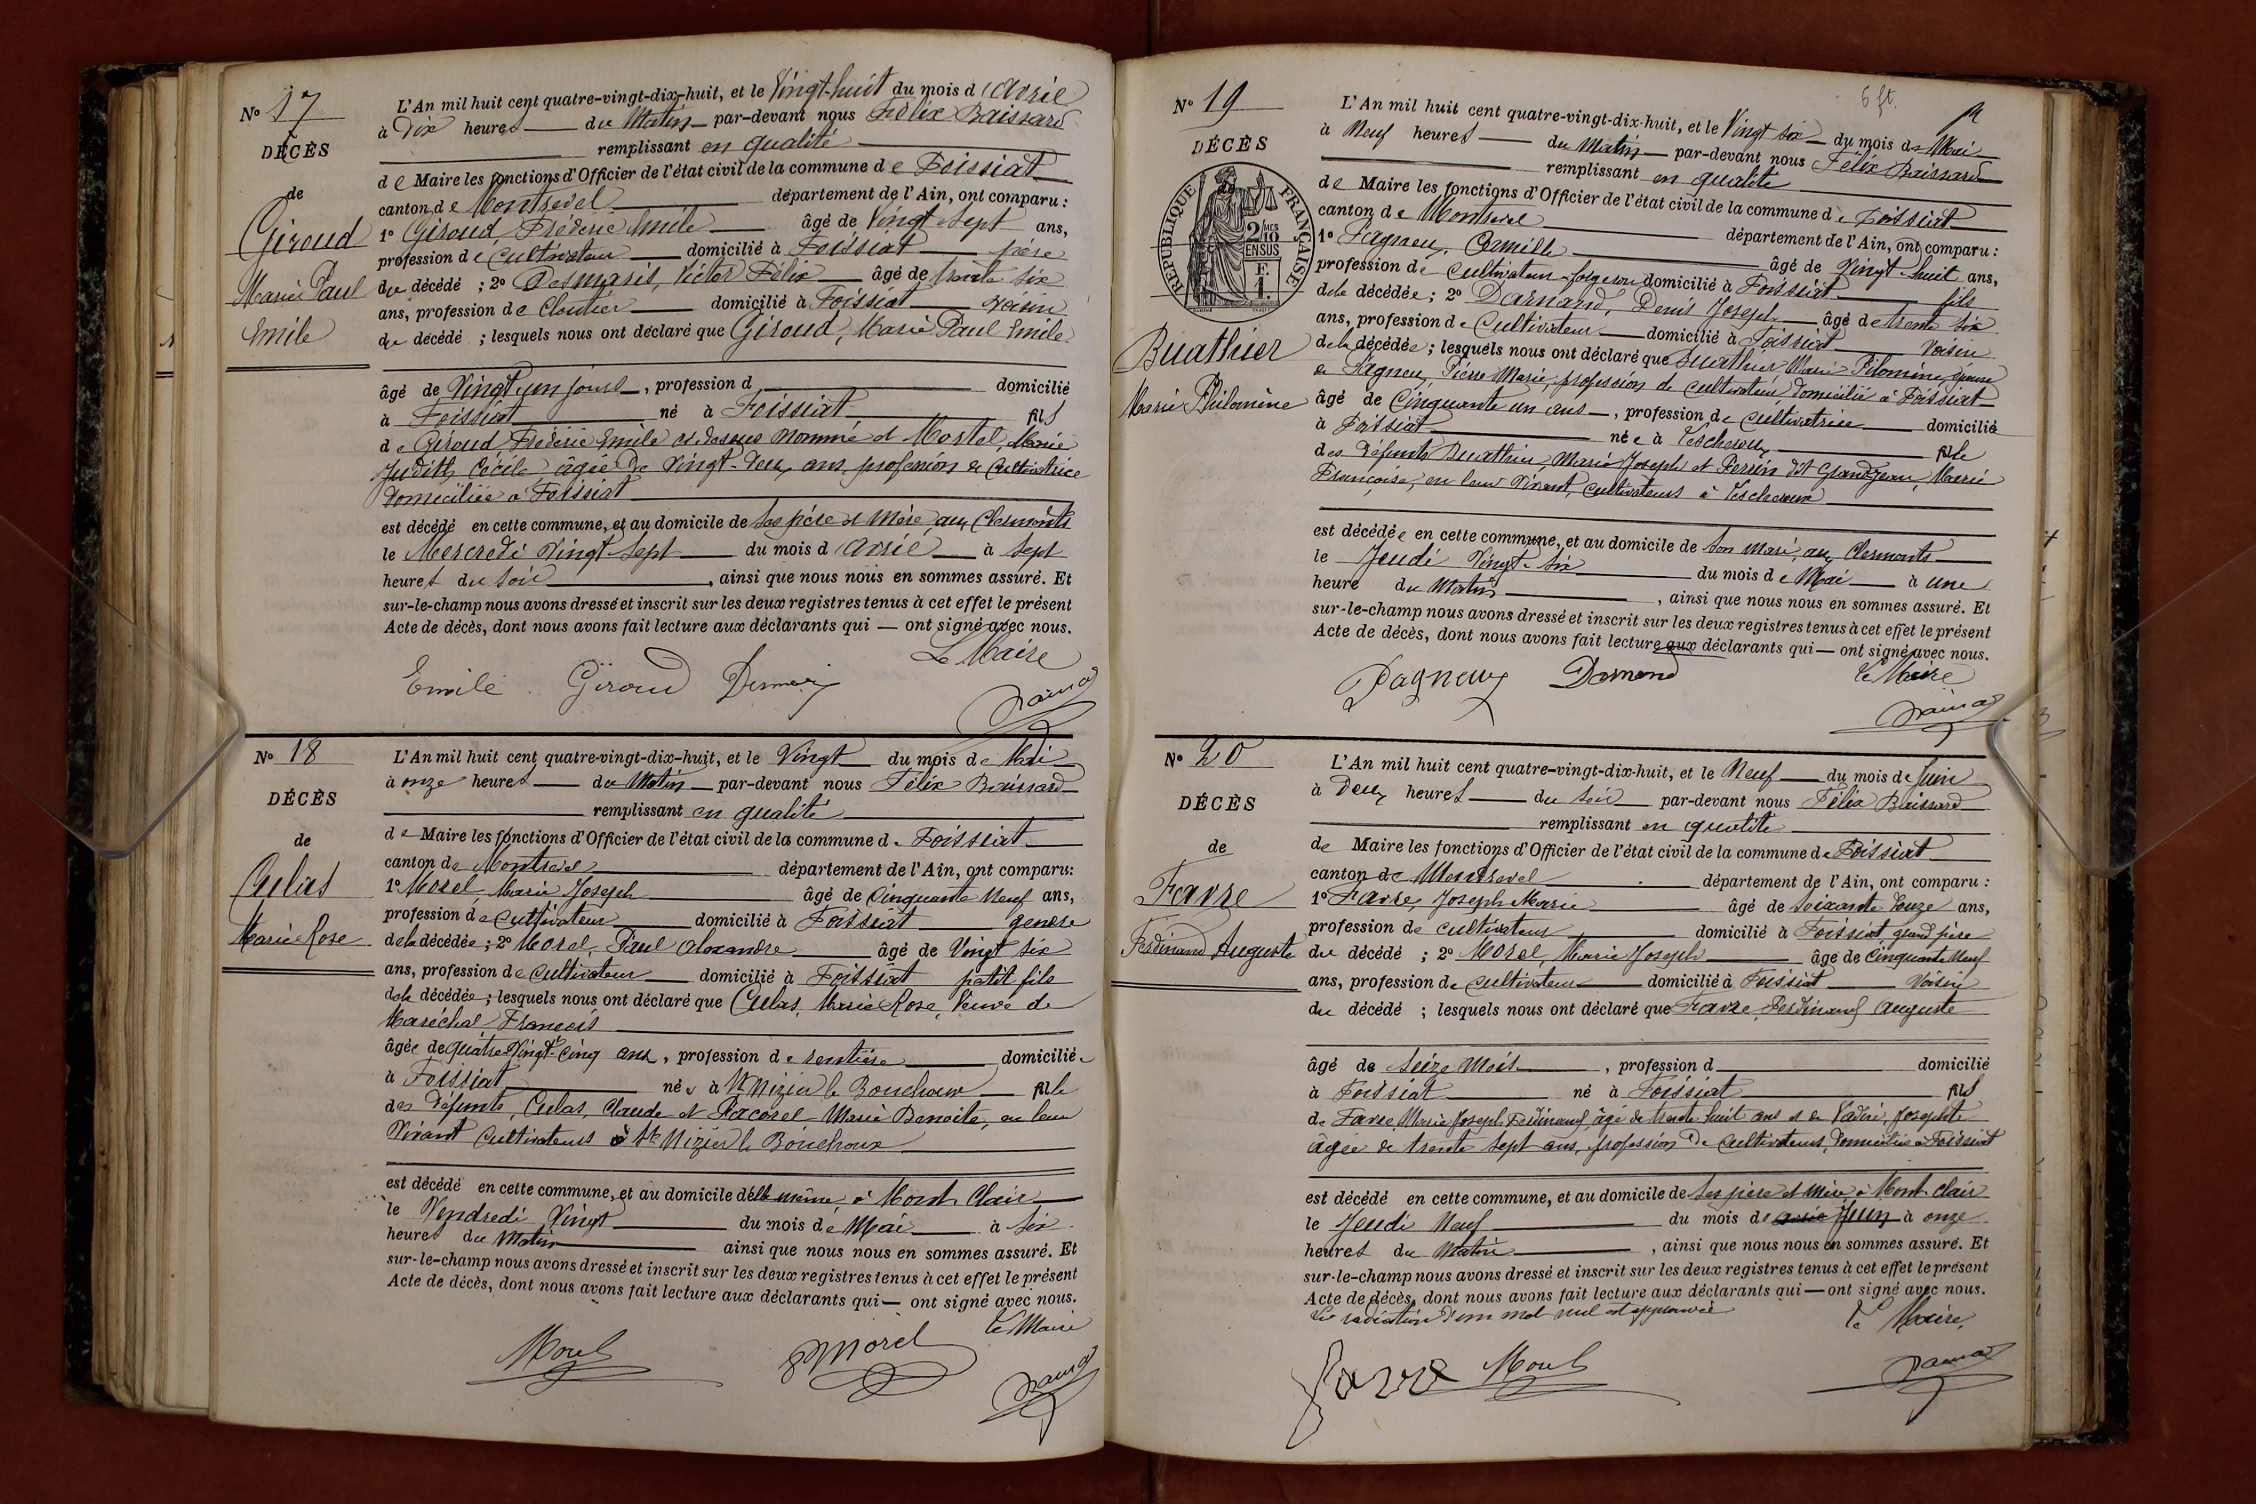 N° 17
DÉCÈS
de
Giroud
Marie Paul
Emile
L'An mil huit cent quatre-vingt-dix-huit, et le Vingt-huit du mois d'Avril
à Dix heures du Matin par-devant nous Félix Baissard
remplissant en qualité
de Maire les fonctions d'Officier de l'état civil de la commune de Foissiat
canton de Montrevel département de l'Ain, ont comparu :
1° Giroud, Fréderic Emile âgé de Vingt-Sept ans,
profession de Cultivateur domicilié à Foissiat père
du décédé ; 2° Desmaris, Victor Félix âgé de trente six
ans, profession de Cloutier domicilié à Foissiat voisin
du décédé ; lesquels nous ont déclaré que Giroud, Marie Paul Emile
âgé de Vingt un jours, profession d domicilié
à Foissiat né à Foissiat fils
de Giroud Fréderic Emile ci dessus nommé et Mortel, Marie
Judith Cécile, âgée de Vingt-deux ans, profession de Cultivatrice
domiciliée à Foissiat
est décédé en cette commune, et au domicile de Ses père et mère aux Clermonts
le Mercredi Vingt Sept du mois d'Avril à Sept
heures du Soir, ainsi que nous nous en sommes assuré. Et
sur-le-champ nous avons dressé et inscrit sur les deux registres tenus à cet effet le présent
Acte de décès, dont nous avons fait lecture aux déclarants qui — ont signé avec nous.
Le Maire
Emile Giroud
N° 18
DÉCÈS
de
Culas
Marie Rose
L'An mil huit cent quatre-vingt-dix-huit, et le Vingt du mois de Mai
à onze heures du Matin par-devant nous Félix Baissard
remplissant en qualité
de Maire les fonctions d'Officier de l'état civil de la commune de Foissiat
canton de Montrevel département de l'Ain, ont comparu :
1° Morel, Marie Joseph âgé de Cinquante Neuf ans,
profession de Cultivateur domicilié à Foissiat gendre
de la décédée ; 2° Morel, Paul Alexandre âgé de Vingt six
ans, profession de Cultivateur domicilié à Foissiat petit fils
de la décédée ; lesquels nous ont déclaré que Culas, Marie Rose, Veuve de
Maréchal, François
âgée de quatre Vingt-Cinq ans, profession de rentière domiciliée
à Foissiat née à St Nizier le Bouchoux fille
des défunts, Culas, Claude et Marie Benoite, en leur
Vivant Cultivateurs à St Nizier le Bouchoux
est décédé en cette commune, et au domicile d'elle même, à Mont Clair
le Vendredi Vingt du mois de Mai à Six
heures du Matin ainsi que nous nous en sommes assuré. Et
sur-le-champ nous avons dressé et inscrit sur les deux registres tenus à cet effet le présent
Acte de décès, dont nous avons fait lecture aux déclarants qui — ont signé avec nous.
Le Maire
Morel Morel
6 ft.
N° 19
DÉCÈS
RÉPUBLIQUE FRANÇAISE
2 MES
10
EN SUS
F.
1.
Buathier
Marie Philomène
L'An mil huit cent quatre-vingt-dix-huit, et le Vingt six du mois de Mai
à Neuf heures du Matin par-devant nous Félix Baissard
remplissant en qualité
de Maire les fonctions d'Officier de l'état civil de la commune de Foissiat
canton de Montrevel département de l'Ain, ont comparu :
1° Pagneux, Camille âgé de Vingt-huit ans,
profession de Cultivateur-forgeron domicilié à Foissiat fils
de la décédée ; 2° Darnand, Denis Joseph âgé de trente six
ans, profession de Cultivateur domicilié à Foissiat Voisin
de la décédée ; lesquels nous ont déclaré que Buathier, Marie Filomène, épouse
de Pagneux, Pierre Marie, profession de cultivateur, domicilié à Foissiat
âgé de Cinquante un ans, profession de Cultivatrice domiciliée
à Foissiat née à Lescheroux fille
des défunts Buathier, Marie Joseph et Perrin dit Grandjean, Marie
Françoise, en leur Vivant, cultivateurs à Lescheroux
est décédée en cette commune, et au domicile de Son Mari, aux Clermonts
le Jeudi Vingt-six du mois de Mai à une
heure du Matin, ainsi que nous nous en sommes assuré. Et
sur-le-champ nous avons dressé et inscrit sur les deux registres tenus à cet effet le présent
Acte de décès, dont nous avons fait lecture aux déclarants qui — ont signé avec nous.
Le Maire
Pagneux Darnand
N° 20
DÉCÈS
de
Favre
Ferdinand Auguste
L'An mil huit cent quatre-vingt-dix-huit, et le Neuf du mois de Juin
à Deux heures du Soir par-devant nous Félix Baissard
remplissant en qualité
de Maire les fonctions d'Officier de l'état civil de la commune de Foissiat
canton de Montrevel département de l'Ain, ont comparu :
1° Favre, Joseph Marie âgé de Soixante douze ans,
profession de Cultivateur domicilié à Foissiat, grand père
du décédé ; 2° Morel, Marie Joseph âgé de Cinquante Neuf
ans, profession de Cultivateur domicilié à Foissiat Voisin
du décédé ; lesquels nous ont déclaré que Favre, Ferdinand Auguste
âgé de Seize Mois, profession d domicilié
à Foissiat né à Foissiat fils
de Favre, Marie Joseph Ferdinand, âgé de trente huit ans et de Josephte
âgée de trente Sept ans, profession de Cultivateurs, domiciliés à Foissiat
est décédé en cette commune, et au domicile de Ses père et mère à Mont Clair
le Jeudi Neuf du mois de Juin à onze
heures du Matin, ainsi que nous nous en sommes assuré. Et
sur-le-champ nous avons dressé et inscrit sur les deux registres tenus à cet effet le présent
Acte de décès, dont nous avons fait lecture aux déclarants qui — ont signé avec nous.
La radiation d'un mot nul est approuvée
Le Maire,
Favre Morel